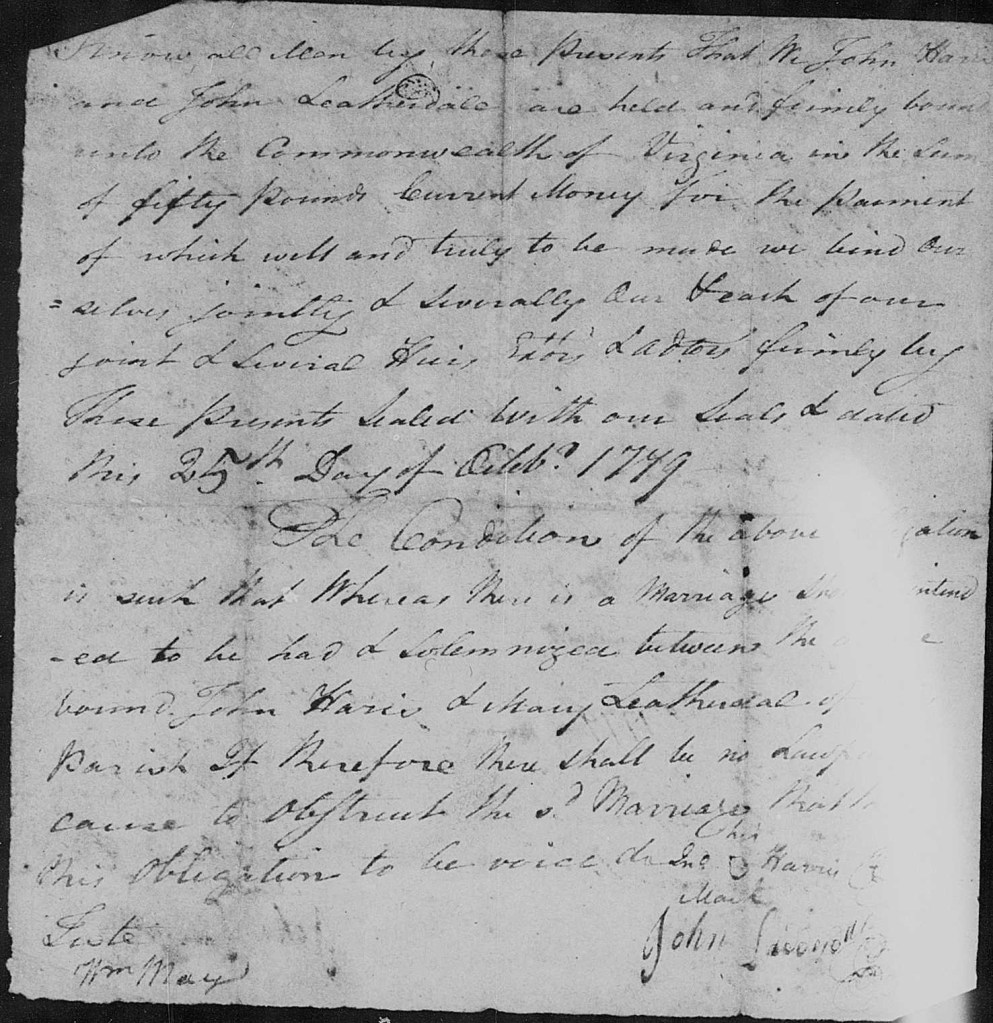 Know all Men by these Presents That We John Harris
and John Leatherdale are held and firmly bound
unto the Commonwealth of Virginia in the Sum
of fifty Pounds Current Money for the Paiment
of which well and truly to be made we bind Our
=selves jointly & Severally Our & each of our
joint & Several Heirs Exors & adtors firmly by
These Presents Sealed With our Seals & dated
this 25th Day of 1779
The Condition of the above
is such that Whereas there is a Marriage intend
-ed to be had & Solemnized between the
bound John Haris & Mary Leatherdale of
Parish If therefore there shall be no
cause to Obstruct the sd Marriage that
this Obligation to be void &c Jno his Harris
Mark
Teste John
Wm May